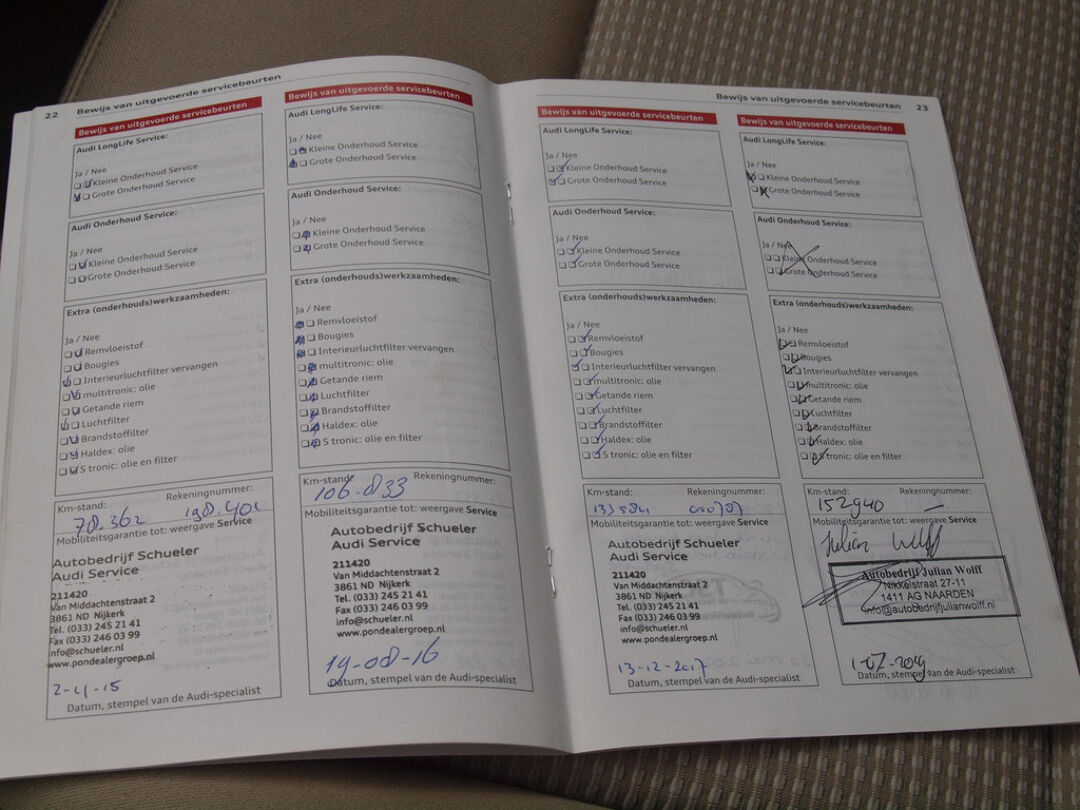 22 Bewijs van uitgevoerde servicebeurten
Bewijs van uitgevoerde servicebeurten
Audi LongLife Service:
Ja / Nee
Kleine Onderhoud Service
Grote Onderhoud Service
Audi Onderhoud Service:
Ja / Nee
Kleine Onderhoud Service
Grote Onderhoud Service
Extra (onderhouds)werkzaamheden:
Ja / Nee
Remvloeistof
Bougies
Interieurluchtfilter vervangen
multitronic: olie
Getande riem
Luchtfilter
Brandstoffilter
Haldex: olie
S tronic: olie en filter
Km-stand: Rekeningnummer:
78.362 198.401
Mobiliteitsgarantie tot: weergave Service
Autobedrijf Schueler
Audi Service
211420
Van Middachtenstraat 2
3861 ND Nijkerk
Tel. (033) 245 21 41
Fax (033) 246 03 99
info@schueler.nl
www.pondealergroep.nl
Datum, stempel van de Audi-specialist
Bewijs van uitgevoerde servicebeurten
Audi LongLife Service:
Ja / Nee
Kleine Onderhoud Service
Grote Onderhoud Service
Audi Onderhoud Service:
Ja / Nee
Kleine Onderhoud Service
Grote Onderhoud Service
Extra (onderhouds)werkzaamheden:
Ja / Nee
Remvloeistof
Bougies
Interieurluchtfilter vervangen
multitronic: olie
Getande riem
Luchtfilter
Brandstoffilter
Haldex: olie
S tronic: olie en filter
Km-stand: Rekeningnummer:
106.833
Mobiliteitsgarantie tot: weergave Service
Autobedrijf Schueler
Audi Service
211420
Van Middachtenstraat 2
3861 ND Nijkerk
Tel. (033) 245 21 41
Fax (033) 246 03 99
info@schueler.nl
www.pondealergroep.nl
19-08-16
Datum, stempel van de Audi-specialist
Bewijs van uitgevoerde servicebeurten 23
Bewijs van uitgevoerde servicebeurten
Audi LongLife Service:
Ja / Nee
Kleine Onderhoud Service
Grote Onderhoud Service
Audi Onderhoud Service:
Ja / Nee
Kleine Onderhoud Service
Grote Onderhoud Service
Extra (onderhouds)werkzaamheden:
Ja / Nee
Remvloeistof
Bougies
Interieurluchtfilter vervangen
multitronic: olie
Getande riem
Luchtfilter
Brandstoffilter
Haldex: olie
S tronic: olie en filter
Km-stand: Rekeningnummer:
Mobiliteitsgarantie tot: weergave Service
Autobedrijf Schueler
Audi Service
211420
Van Middachtenstraat 2
3861 ND Nijkerk
Tel. (033) 245 21 41
Fax (033) 246 03 99
info@schueler.nl
www.pondealergroep.nl
13-12-2017
Datum, stempel van de Audi-specialist
Bewijs van uitgevoerde servicebeurten
Audi LongLife Service:
Ja / Nee
Kleine Onderhoud Service
Grote Onderhoud Service
Audi Onderhoud Service:
Ja / Nee
Kleine Onderhoud Service
Grote Onderhoud Service
Extra (onderhouds)werkzaamheden:
Ja / Nee
Remvloeistof
Bougies
Interieurluchtfilter vervangen
multitronic: olie
Getande riem
Luchtfilter
Brandstoffilter
Haldex: olie
S tronic: olie en filter
Km-stand: Rekeningnummer:
152940 —
Mobiliteitsgarantie tot: weergave Service
Julian Wolff
Autobedrijf Julian Wolff
Nikkelstraat 27-11
1411 AG NAARDEN
info@autobedrijfjulianwolff.nl
Datum, stempel van de Audi-specialist